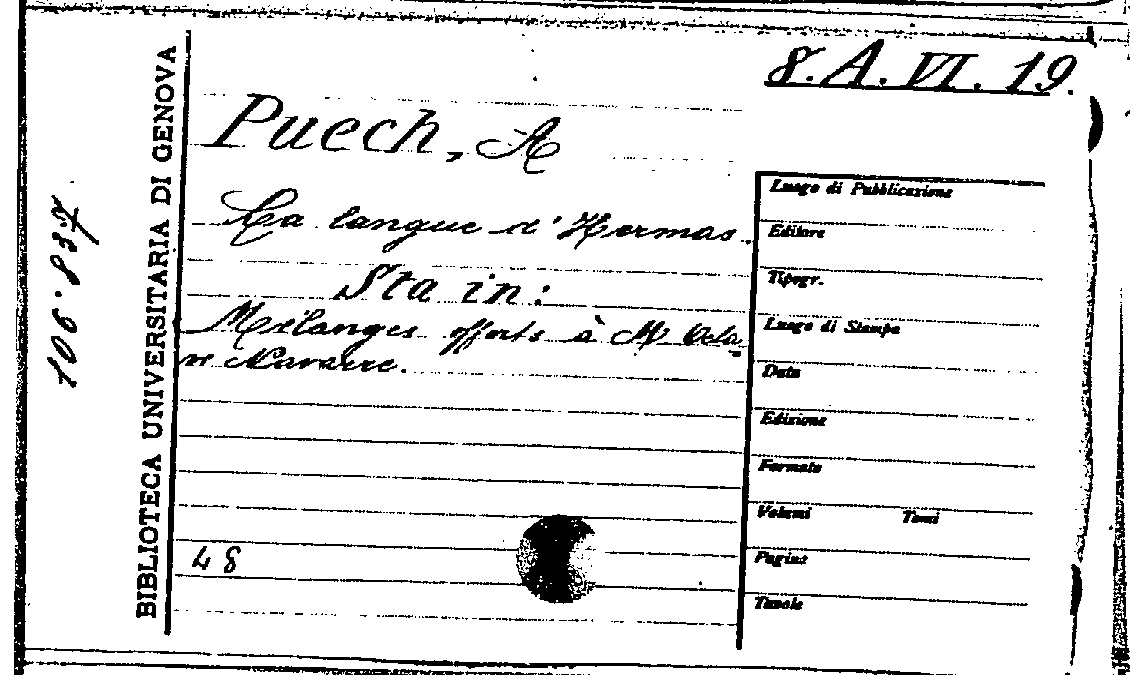 8.A.VI.19.
Puech, A
La langue d'Hermas.
Sta in:
Mélanges offerts à M Octa
ve Navarre.
48
106.837
BIBLIOTECA UNIVERSITARIA DI GENOVA
Luogo di Pubblicazione
Editore
Tipogr.
Luogo di Stampa
Data
Edizione
Formato
Volumi Tomi
Pagine
Tavole